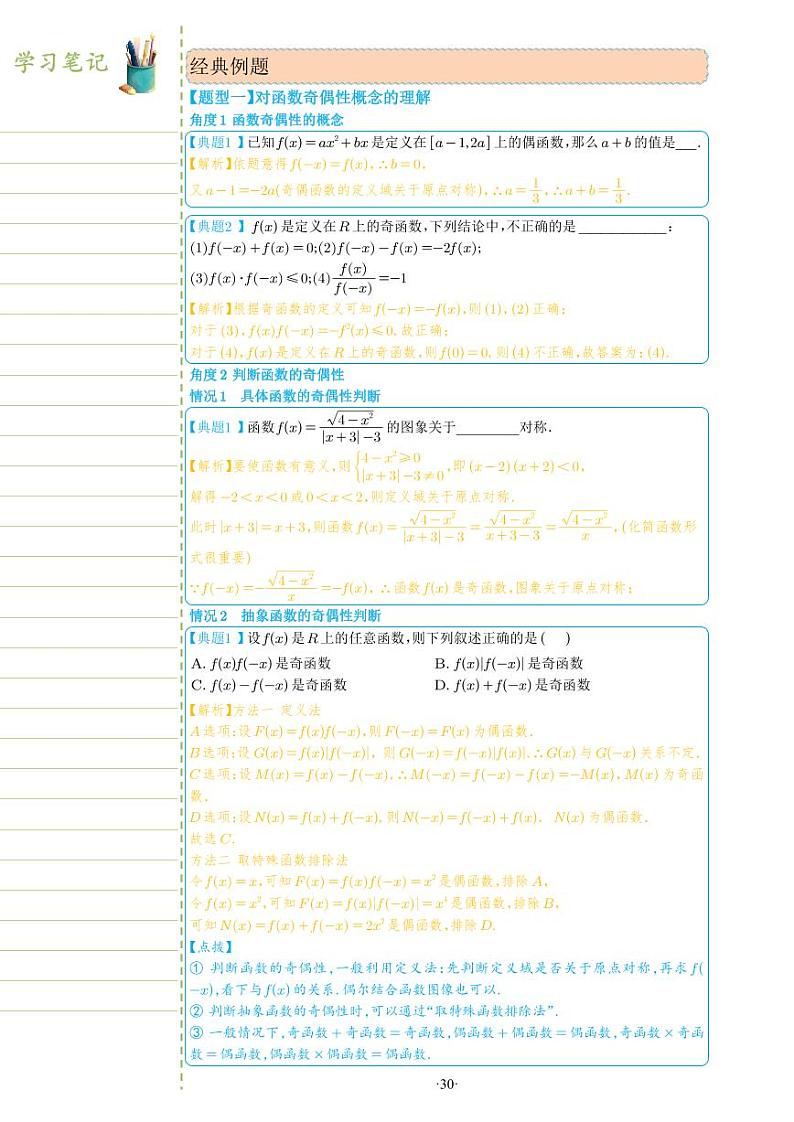 学习笔记
经典例题
【题型一】对函数奇偶性概念的理解
角度1 函数奇偶性的概念
【典题1】已知f(x)=ax²+bx是定义在[a−1,2a]上的偶函数,那么a+b的值是___.
【解析】依题意得f(−x)=f(x), ∴b=0,
又a−1=−2a(奇偶函数的定义域关于原点对称), ∴a=1/3, ∴a+b=1/3.
【典题2】 f(x)是定义在R上的奇函数,下列结论中,不正确的是____________:
(1)f(−x)+f(x)=0;(2)f(−x)−f(x)=−2f(x);
(3)f(x)·f(−x)≤0;(4)f(x)/f(−x)=−1
【解析】根据奇函数的定义可知f(−x)=−f(x),则(1),(2)正确;
对于(3), f(x)f(−x)=−f²(x)≤0,故正确;
对于(4), f(x)是定义在R上的奇函数,则f(0)=0,则(4)不正确,故答案为:(4).
角度2 判断函数的奇偶性
情况1 具体函数的奇偶性判断
【典题1】函数f(x)=√(4−x²)/(|x+3|−3)的图象关于_________对称.
【解析】要使函数有意义,则{4−x²⩾0 |x+3|−3≠0,即(x−2)(x+2)<0,
解得−2<x<0或0<x<2,则定义域关于原点对称.
此时|x+3|=x+3,则函数f(x)=√(4−x²)/(|x+3|−3)=√(4−x²)/(x+3−3)=√(4−x²)/x, (化简函数形
式很重要)
∵f(−x)=−√(4−x²)/x=−f(x), ∴函数f(x)是奇函数,图象关于原点对称;
情况2 抽象函数的奇偶性判断
【典题1】设f(x)是R上的任意函数,则下列叙述正确的是( )
A. f(x)f(−x)是奇函数 B. f(x)|f(−x)|是奇函数
C. f(x)−f(−x)是奇函数 D. f(x)+f(−x)是奇函数
【解析】方法一 定义法
A选项:设F(x)=f(x)f(−x),则F(−x)=F(x)为偶函数.
B选项:设G(x)=f(x)|f(−x)|, 则G(−x)=f(−x)|f(x)|.∴G(x)与G(−x)关系不定.
C选项:设M(x)=f(x)−f(−x),∴M(−x)=f(−x)−f(x)=−M(x),M(x)为奇函
数.
D选项:设N(x)=f(x)+f(−x),则N(−x)=f(−x)+f(x). N(x)为偶函数.
故选C.
方法二 取特殊函数排除法
令f(x)=x,可知F(x)=f(x)f(−x)=x²是偶函数,排除A,
令f(x)=x²,可知F(x)=f(x)|f(−x)|=x⁴是偶函数,排除B,
可知N(x)=f(x)+f(−x)=2x²是偶函数,排除D.
【点拨】
① 判断函数的奇偶性,一般利用定义法:先判断定义域是否关于原点对称,再求f(
−x),看下与f(x)的关系.偶尔结合函数图像也可以.
② 判断抽象函数的奇偶性时,可以通过“取特殊函数排除法”.
③ 一般情况下,奇函数+奇函数=奇函数,偶函数+偶函数=偶函数,奇函数×奇函
数=偶函数,偶函数×偶函数=偶函数.
·30·